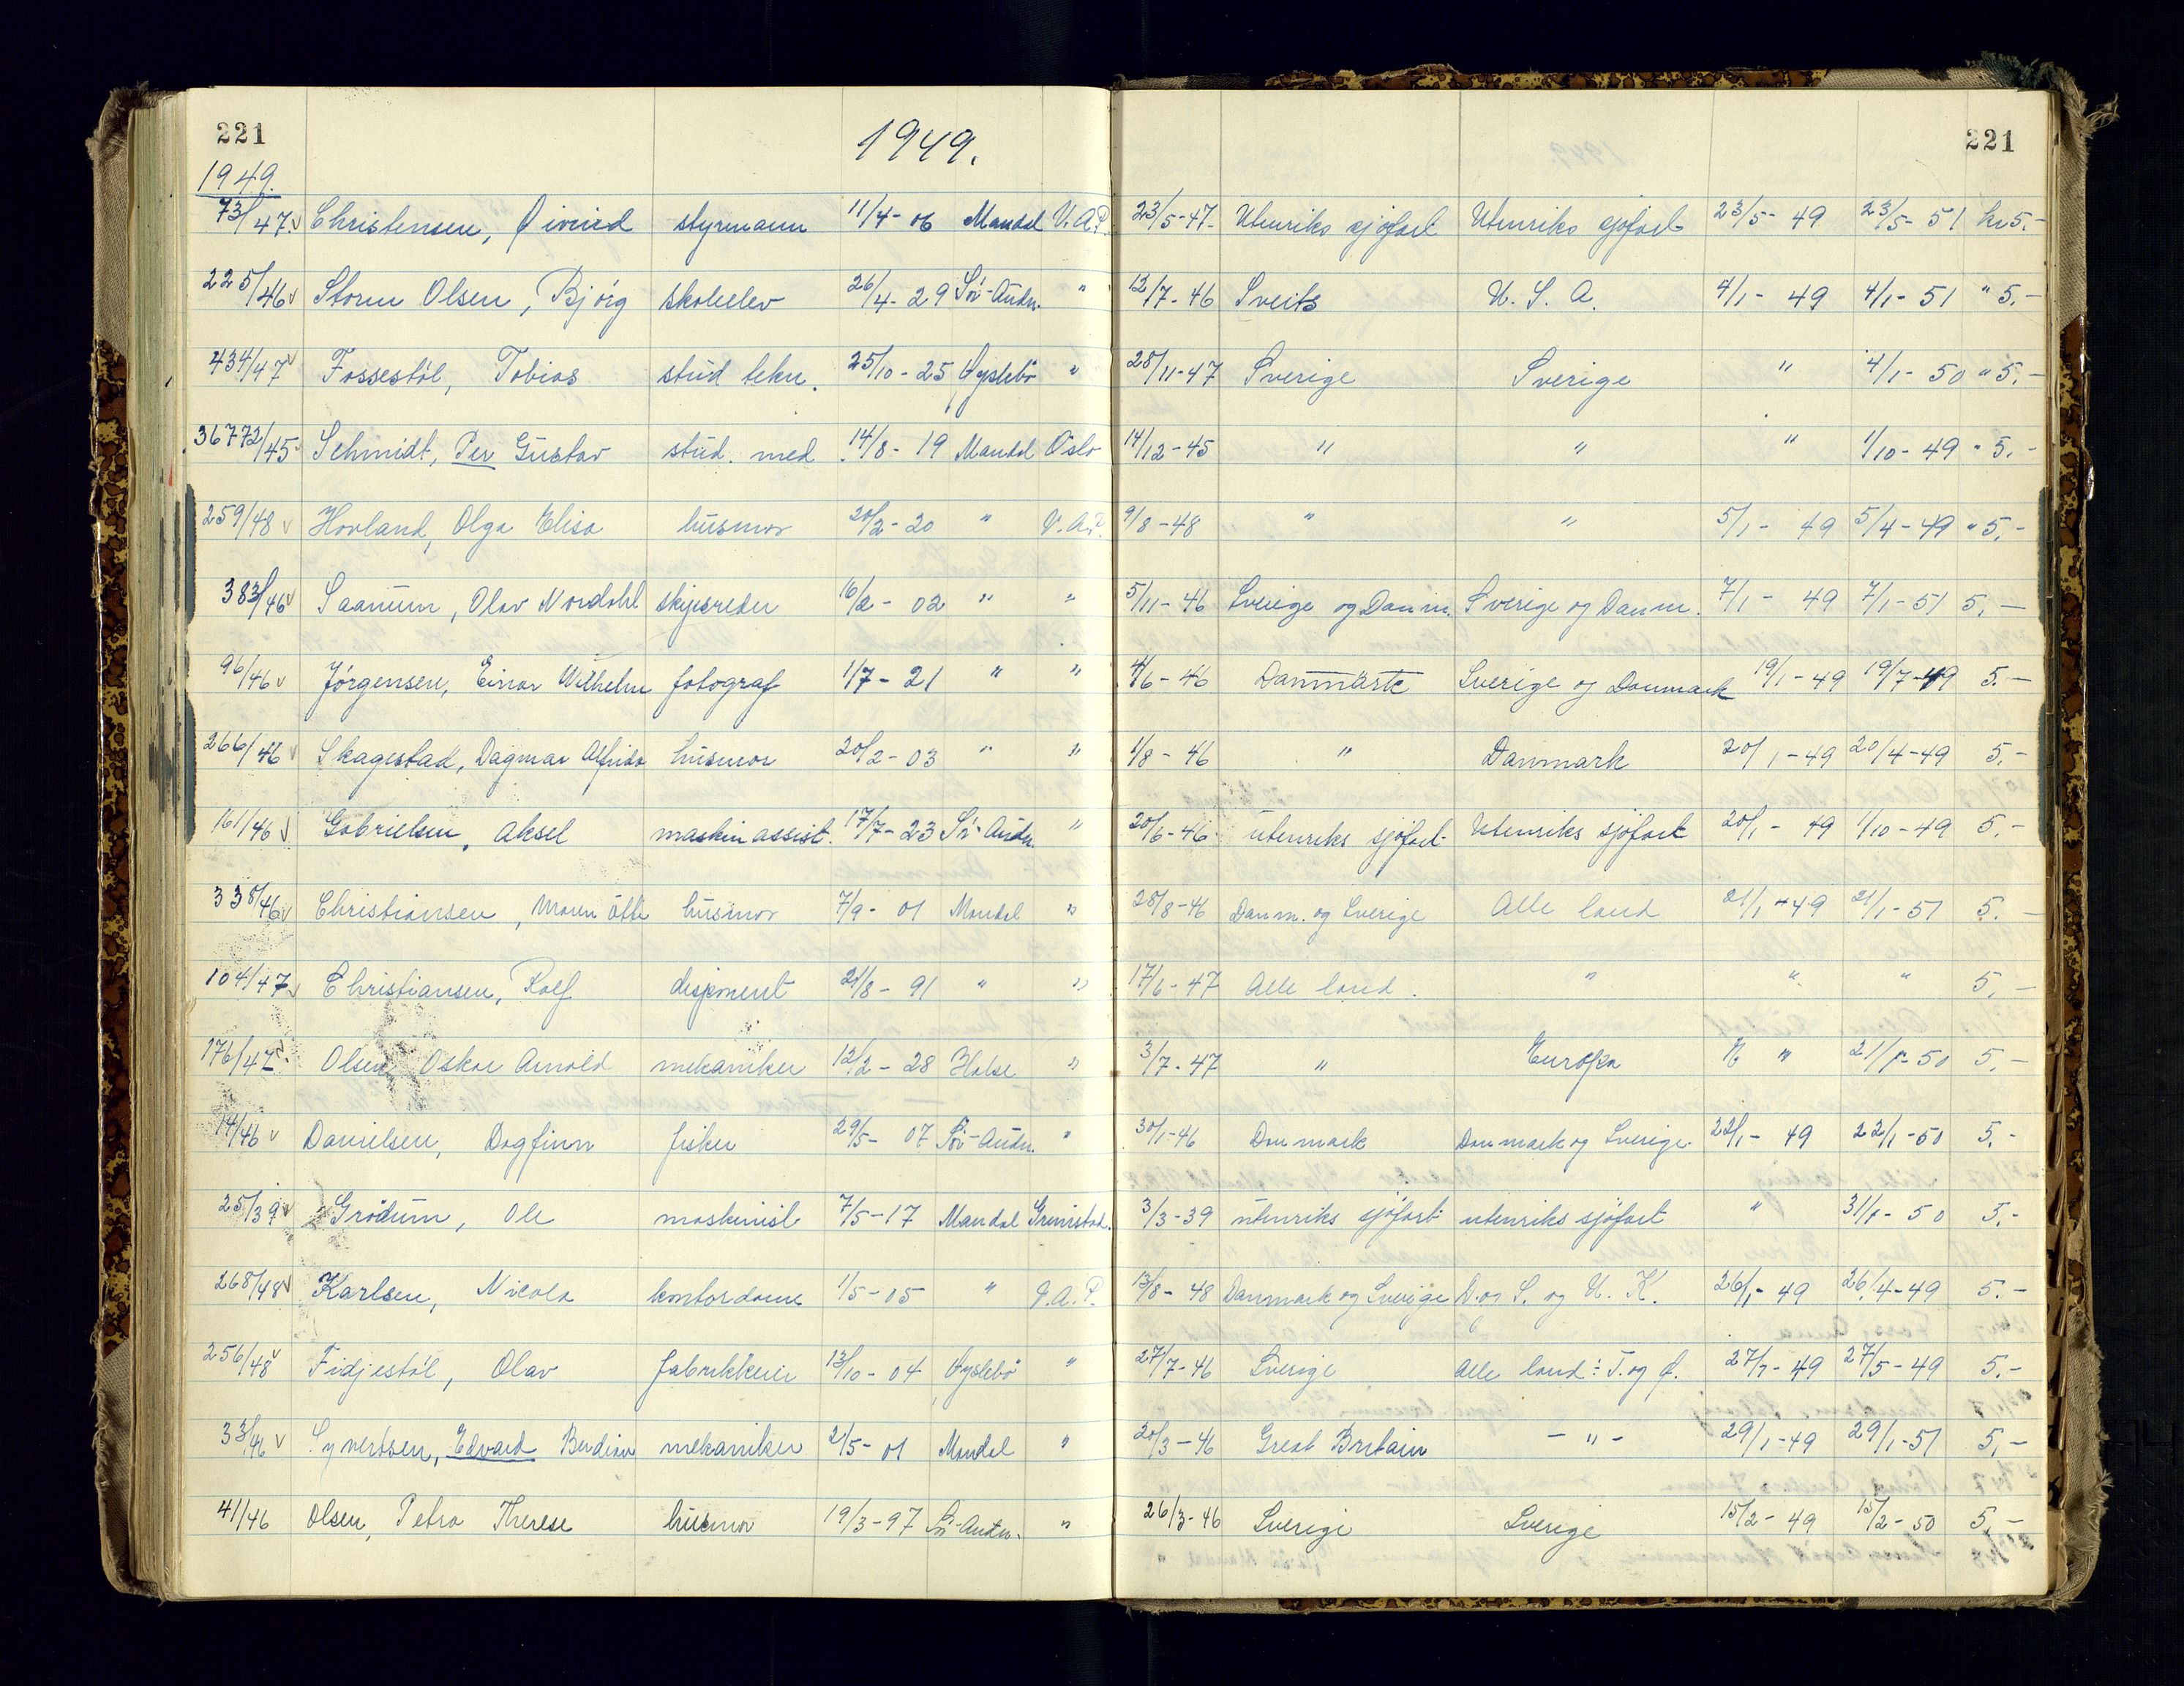 221 1949. 221
1949.
73/47. Christensen, Öivind styrmann 11/4-06 Mandal V.A.P. 23/5-47- Utenriks sjöfart Utenriks sjöfart 23/5-49 23/5-51 kr 5.-
225/46 Storm Olsen, Bjórg skoleelev 26/4-29 Sör-Audn. " 12/7-46 Sveits U.S.A. 4/1-49 4/1-51 " 5.-
434/47 Fossestöl, Tobias stud tekn. 25/10-25 Öyslebö " 28/11-47 Sverige Sverige " 4/1-50 " 5.-
36772/45 Schmidt, Per Gustav stud. med. 14/8-19 Mandal Oslo 14/12-45 " " " 1/10-49 " 5.-
259/48 Hovland, Olga Elisa husmor 20/2-20 " V.A.P. 9/8-48 " " 5/1-49 5/4-49 " 5.-
383/46 Saanum, Olav Nordahl skipsreder 16/2-02 " " 5/11-46 Sverige og Danm. Sverige og Danm. 7/1-49 7/1-51 5.-
96/46 Jörgensen, Einar Wilhelm fotograf 1/7-21 " " 4/6-46 Danmark Sverige og Danmark 19/1-49 19/7-49 5.-
266/46 Skagestad, Dagmar Alfrida husmor 20/2-03 " " 1/8-46 " Danmark 20/1-49 20/4-49 5.-
161/46 Gabrielsen, Aksel maskinassist. 17/7-23 Sör-Audn. " 20/6-46 utenriks sjöfart Utenriks sjöfart 20/1-49 1/10-49 5.-
338/46 Christiansen, Maren husmor 7/9-01 Mandal " 28/8-46 Danm. og Sverige Alle land 21/1-49 21/1-51 5.-
104/47 Christiansen, Rolf disponent 21/8-91 " " 17/6-47 Alle land. " " " 5.-
176/47 Olsen Oskar Arnold mekaniker 12/2-28 Halse " 3/7-47 " Europa " 21/1-50 5.-
14/46 Danielsen, Dagfinn fisker 29/5-07 Sör-Audn. " 30/1-46 Danmark Danmark og Sverige 22/1-49 22/1-50 5.-
25/39 Grödum, Ole maskinist 7/5-17 Mandal Grimstad. 3/3-39 utenriks sjöfart utenriks sjöfart " 31/1-50 5.-
268/48 Karlsen, Nicola kontordame 1/5-05 " V.A.P. 13/8-48 Danmark og Sverige D. og S. og U.K. 26/1-49 26/4-49 5.-
256/48 Fidjestöl, Olav fabrikkeier 13/10-04 Öyslebö " 27/7-46 Sverige Alle land ÷ T. og Ö. 27/1-49 27/5-49 5.-
33/46 Syvertsen, Edvard Berdinius mekaniker 2/5-01 Mandal " 20/3-46 Great Britain - " - 29/1-49 29/1-51 5.-
41/46 Olsen, Petra Therese husmor 19/3-97 Sör-Audn. " 26/3-46 Sverige Sverige 15/2-49 15/2-50 5.-